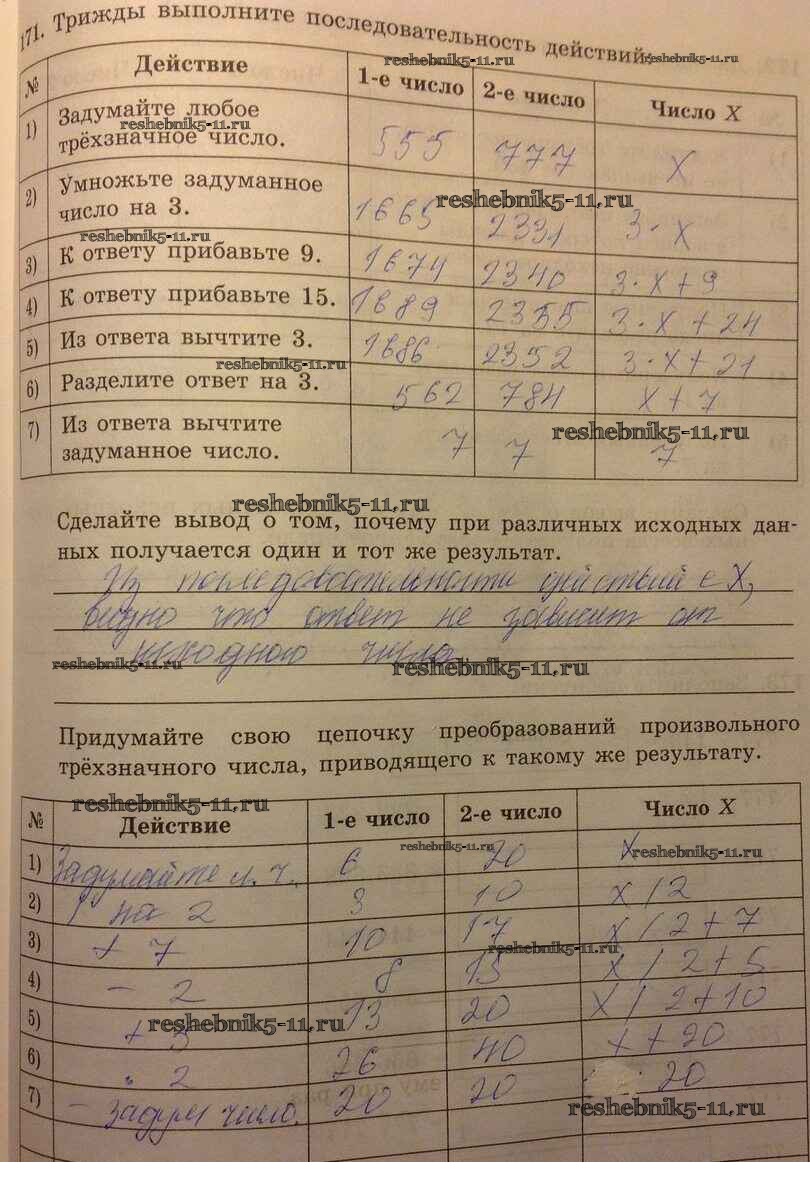 171. Трижды выполните последовательность действий:
reshebnik5-11.ru reshebnik5-11.ru
№ Действие 1-е число 2-е число Число X
1) Задумайте любое
reshebnik5-11.ru
трёхзначное число. 555 777 X
2) Умножьте задуманное
reshebnik5-11.ru
число на 3. 1665 2331 3·X
reshebnik5-11.ru
3) К ответу прибавьте 9. 1674 2340 3·X+9
4) К ответу прибавьте 15. 1689 2355 3·X+24
5) Из ответа вычтите 3. 1686 2352 3·X+21
reshebnik5-11.ru
6) Разделите ответ на 3. 562 784 X+7
7) Из ответа вычтите
reshebnik5-11.ru
задуманное число. 7 7 7
reshebnik5-11.ru
Сделайте вывод о том, почему при различных исходных дан-
ных получается один и тот же результат.
Из последовательности действий с X,
видно что ответ не зависит от
исходного числа
reshebnik5-11.ru reshebnik5-11.ru
Придумайте свою цепочку преобразований произвольного
трёхзначного числа, приводящего к такому же результату.
reshebnik5-11.ru
№ Действие 1-е число 2-е число Число X
reshebnik5-11.ru reshebnik5-11.ru
1) Задумайте л. ч. 6 20 X
2) / на 2 3 10 X/2
3) + 7 10 17 X/2+7
reshebnik5-11.ru
4) - 2 8 15 X/2+5
5) + 5 13 20 X/2+10
reshebnik5-11.ru
6) · 2 26 40 X+20
7) - задум число. 20 20 20
reshebnik5-11.ru